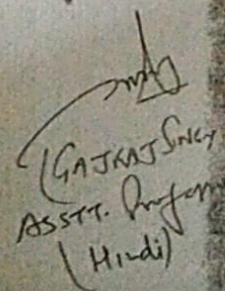 (GAJRAJ SINGH
ASSTT. Professor
(Hindi)